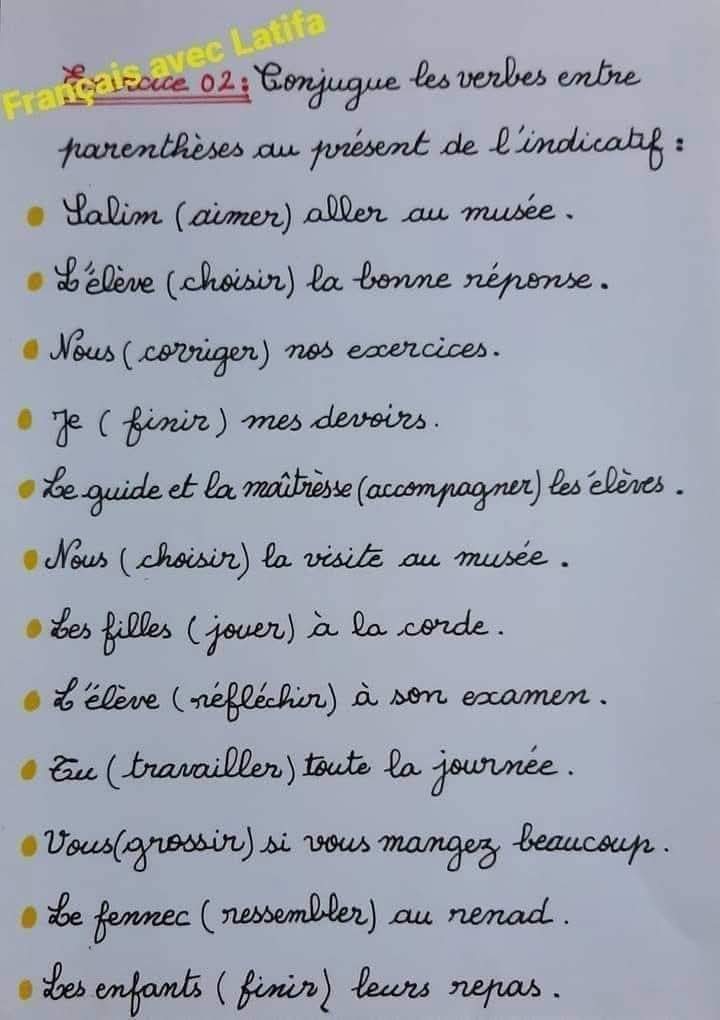 Français avec Latifa
Exercice 02: Conjugue les verbes entre
parenthèses au présent de l'indicatif :
• Salim (aimer) aller au musée.
• L'élève (choisir) la bonne réponse.
• Nous (corriger) nos exercices.
• Je (finir) mes devoirs.
• Le guide et la maîtrèsse (accompagner) les élèves.
• Nous (choisir) la visite au musée.
• Les filles (jouer) à la corde.
• L'élève (réfléchir) à son examen.
• Tu (travailler) toute la journée.
• Vous (grossir) si vous mangez beaucoup.
• Le fennec (ressembler) au renad.
• Les enfants (finir) leurs repas.